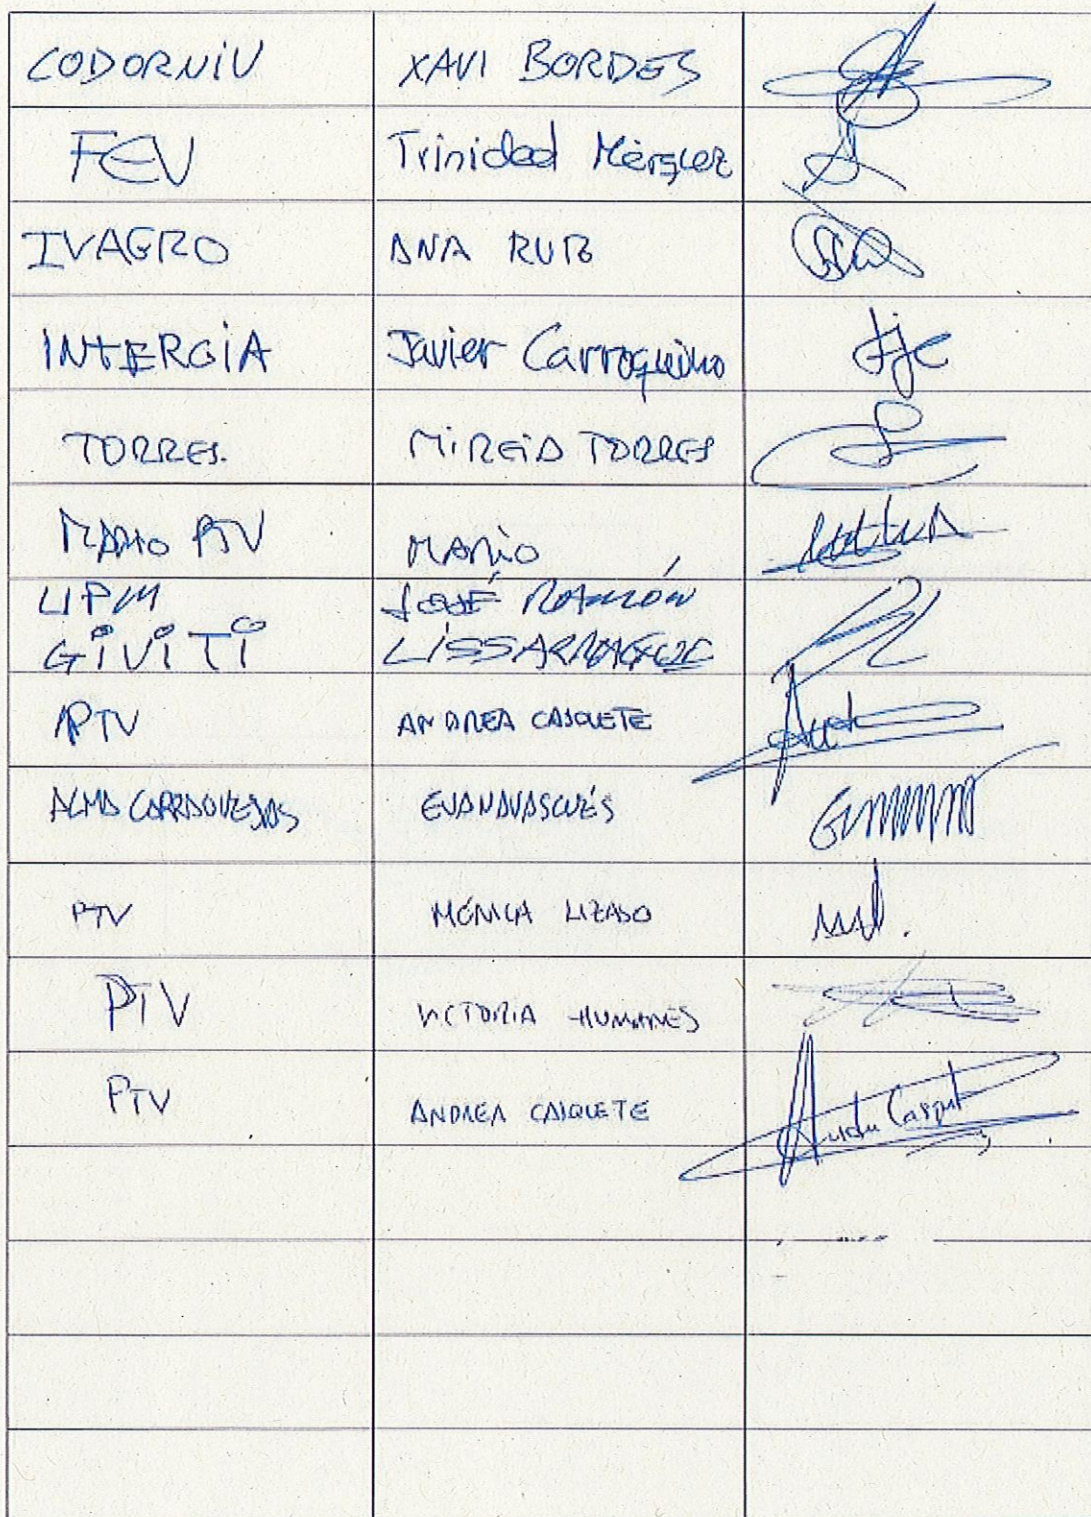 CODORNIU XAVI BORDES
FEV Trinidad Márquez
IVAGRO ANA RUIZ
INTERGIA Javier Carroquino
TORRES. MIREIA TORRES
MARIO PTV MARIO
UPM JOSÉ RAMÓN
GIVITI LISSARRAGUE
PTV ANDREA CASQUETE
ALMA CARRAOVEJAS EVA NAVASCUÉS
PTV MÓNICA LIZASO
PTV VICTORIA HUMANES
PTV ANDREA CASQUETE